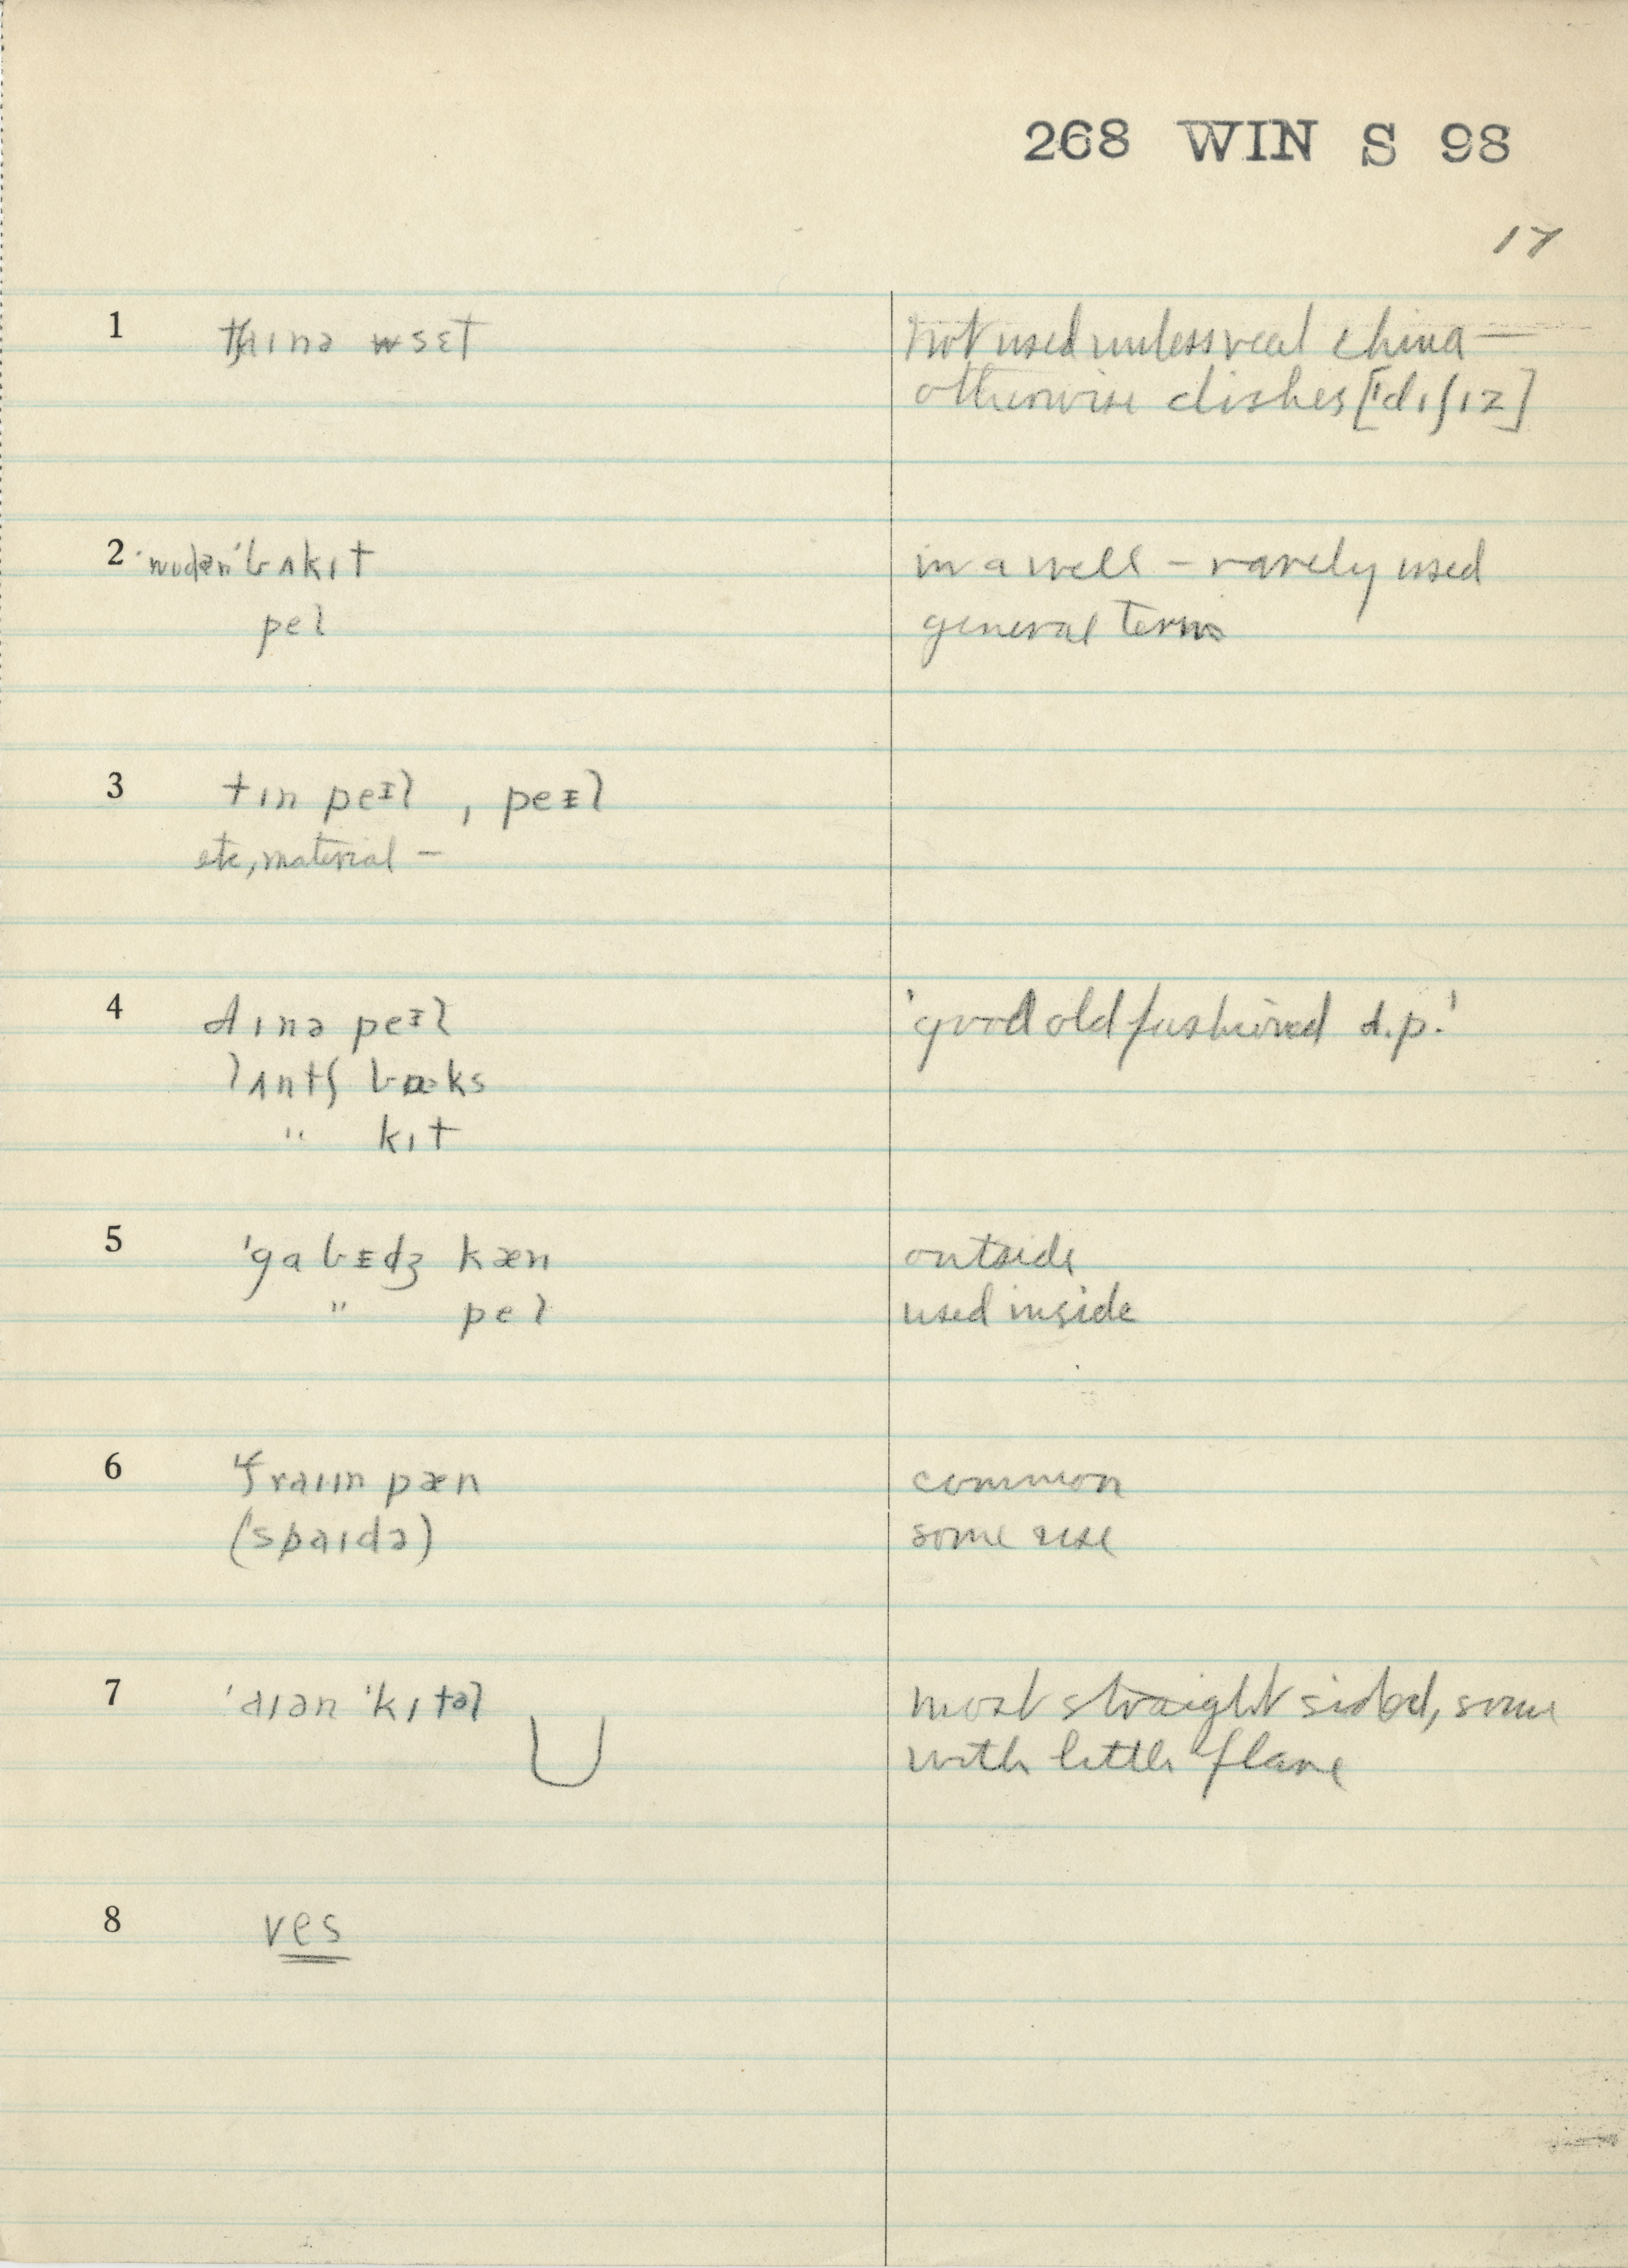 268 WIN S 98
17
1 tʃaɪnə sɛt
not used unless real china —
otherwise dishes ['dɪʃɪz]
2 'wudən 'bʌkɪt
in a well – rarely used
pel
general term
3 tɪn peɪl , peɪl
etc, material –
4 dɪnə peɪl
'good old fashioned d.p.'
lʌntʃ bɒks
" kɪt
5 'gɑbɪdʒ kæn
outside
" pel
used inside
6 fraɪɪn pæn
common
(spaɪdə)
some use
7 'aɪən 'kɪtəl
most straight sided, some
with little flare
8 ves